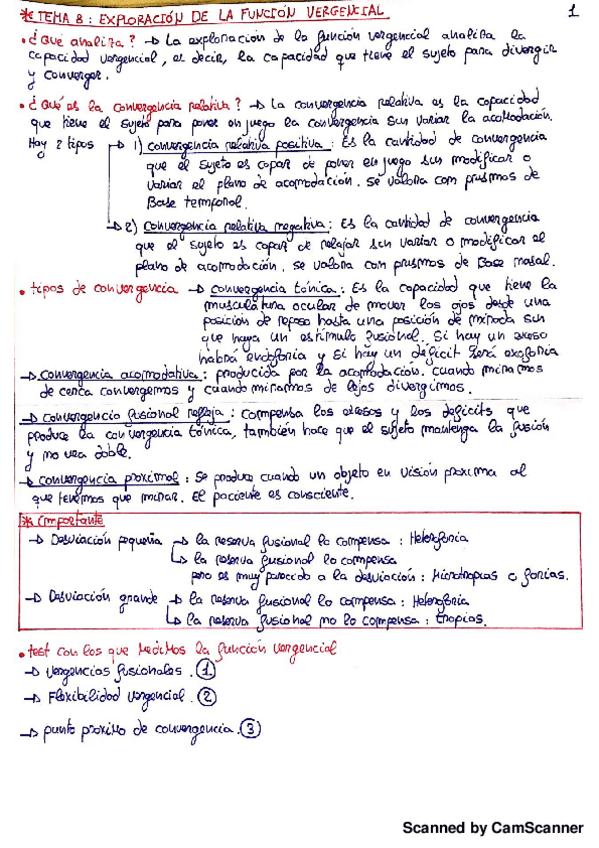 * TEMA 8: EXPLORACIÓN DE LA FUNCIÓN VERGENCIAL 1
• ¿Qué analiza? → La exploración de la función vergencial analiza la
capacidad vergencial, es decir, la capacidad que tiene el sujeto para divergir
y converger.
• ¿Qué es la convergencia relativa? → La convergencia relativa es la capacidad
que tiene el sujeto para poner en juego la convergencia sin variar la acomodación.
Hay 2 tipos → 1) convergencia relativa positiva: Es la cantidad de convergencia
que el sujeto es capaz de poner en juego sin modificar o
variar el plano de acomodación. Se valora con prismas de
Base temporal.
→ 2) convergencia relativa negativa: Es la cantidad de convergencia
que el sujeto es capaz de relajar sin variar o modificar el
plano de acomodación. Se valora con prismas de Base nasal.
• tipos de convergencia → convergencia tónica: Es la capacidad que tiene la
musculatura ocular de mover los ojos desde una
posición de reposo hasta una posición de mirada sin
que haya un estímulo fusional. Si hay un exceso
habrá endoforia y si hay un déficit será exoforia
→ convergencia acomodativa: producida por la acomodación. cuando miramos
de cerca convergemos y cuando miramos de lejos divergimos.
→ convergencia fusional refleja: compensa los excesos y los deficits que
produce la convergencia tónica, también hace que el sujeto mantenga la fusión
y no vea doble.
→ convergencia proximal: Se produce cuando un objeto en visión proxima al
que tenemos que mirar. El paciente es consciente.
* importante
→ Desviación pequeña → la reserva fusional lo compensa: Heteroforia
→ la reserva fusional lo compensa
pero es muy parecido a la desviación: Microtropias o forias.
→ Desviación grande → la reserva fusional lo compensa: Heteroforia
→ la reserva fusional no lo compensa: tropias.
• test con los que medimos la función vergencial
→ vergencias fusionales. ①
→ Flexibilidad vergencial. ②
→ punto proximo de convergencia. ③
Scanned by CamScanner